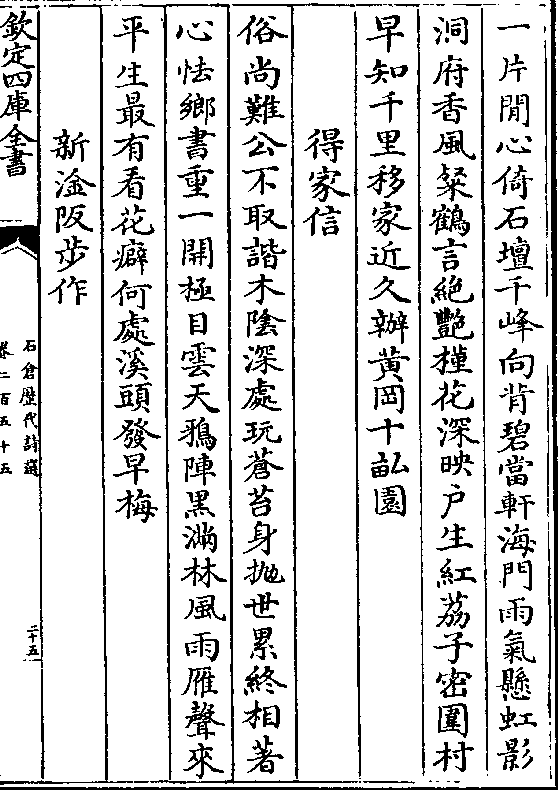 一片閒心倚石壇千峰向背碧當軒海門雨氣懸虹影
洞府香風粲鶴言絶艷槿花深映户生紅荔子密圍村
早知千里移家近久辦黄岡十畝園
得家信
俗尚難公不取諧木陰深處玩蒼苔身抛世累終相著
心怯鄉書重一開極目雲天鴉陣黑滿林風雨雁聲來
平生最有看花癖何處溪頭發早梅
新淦阪步作
欽定四庫全書
石倉歴代詩選
卷二百五十五
二十五